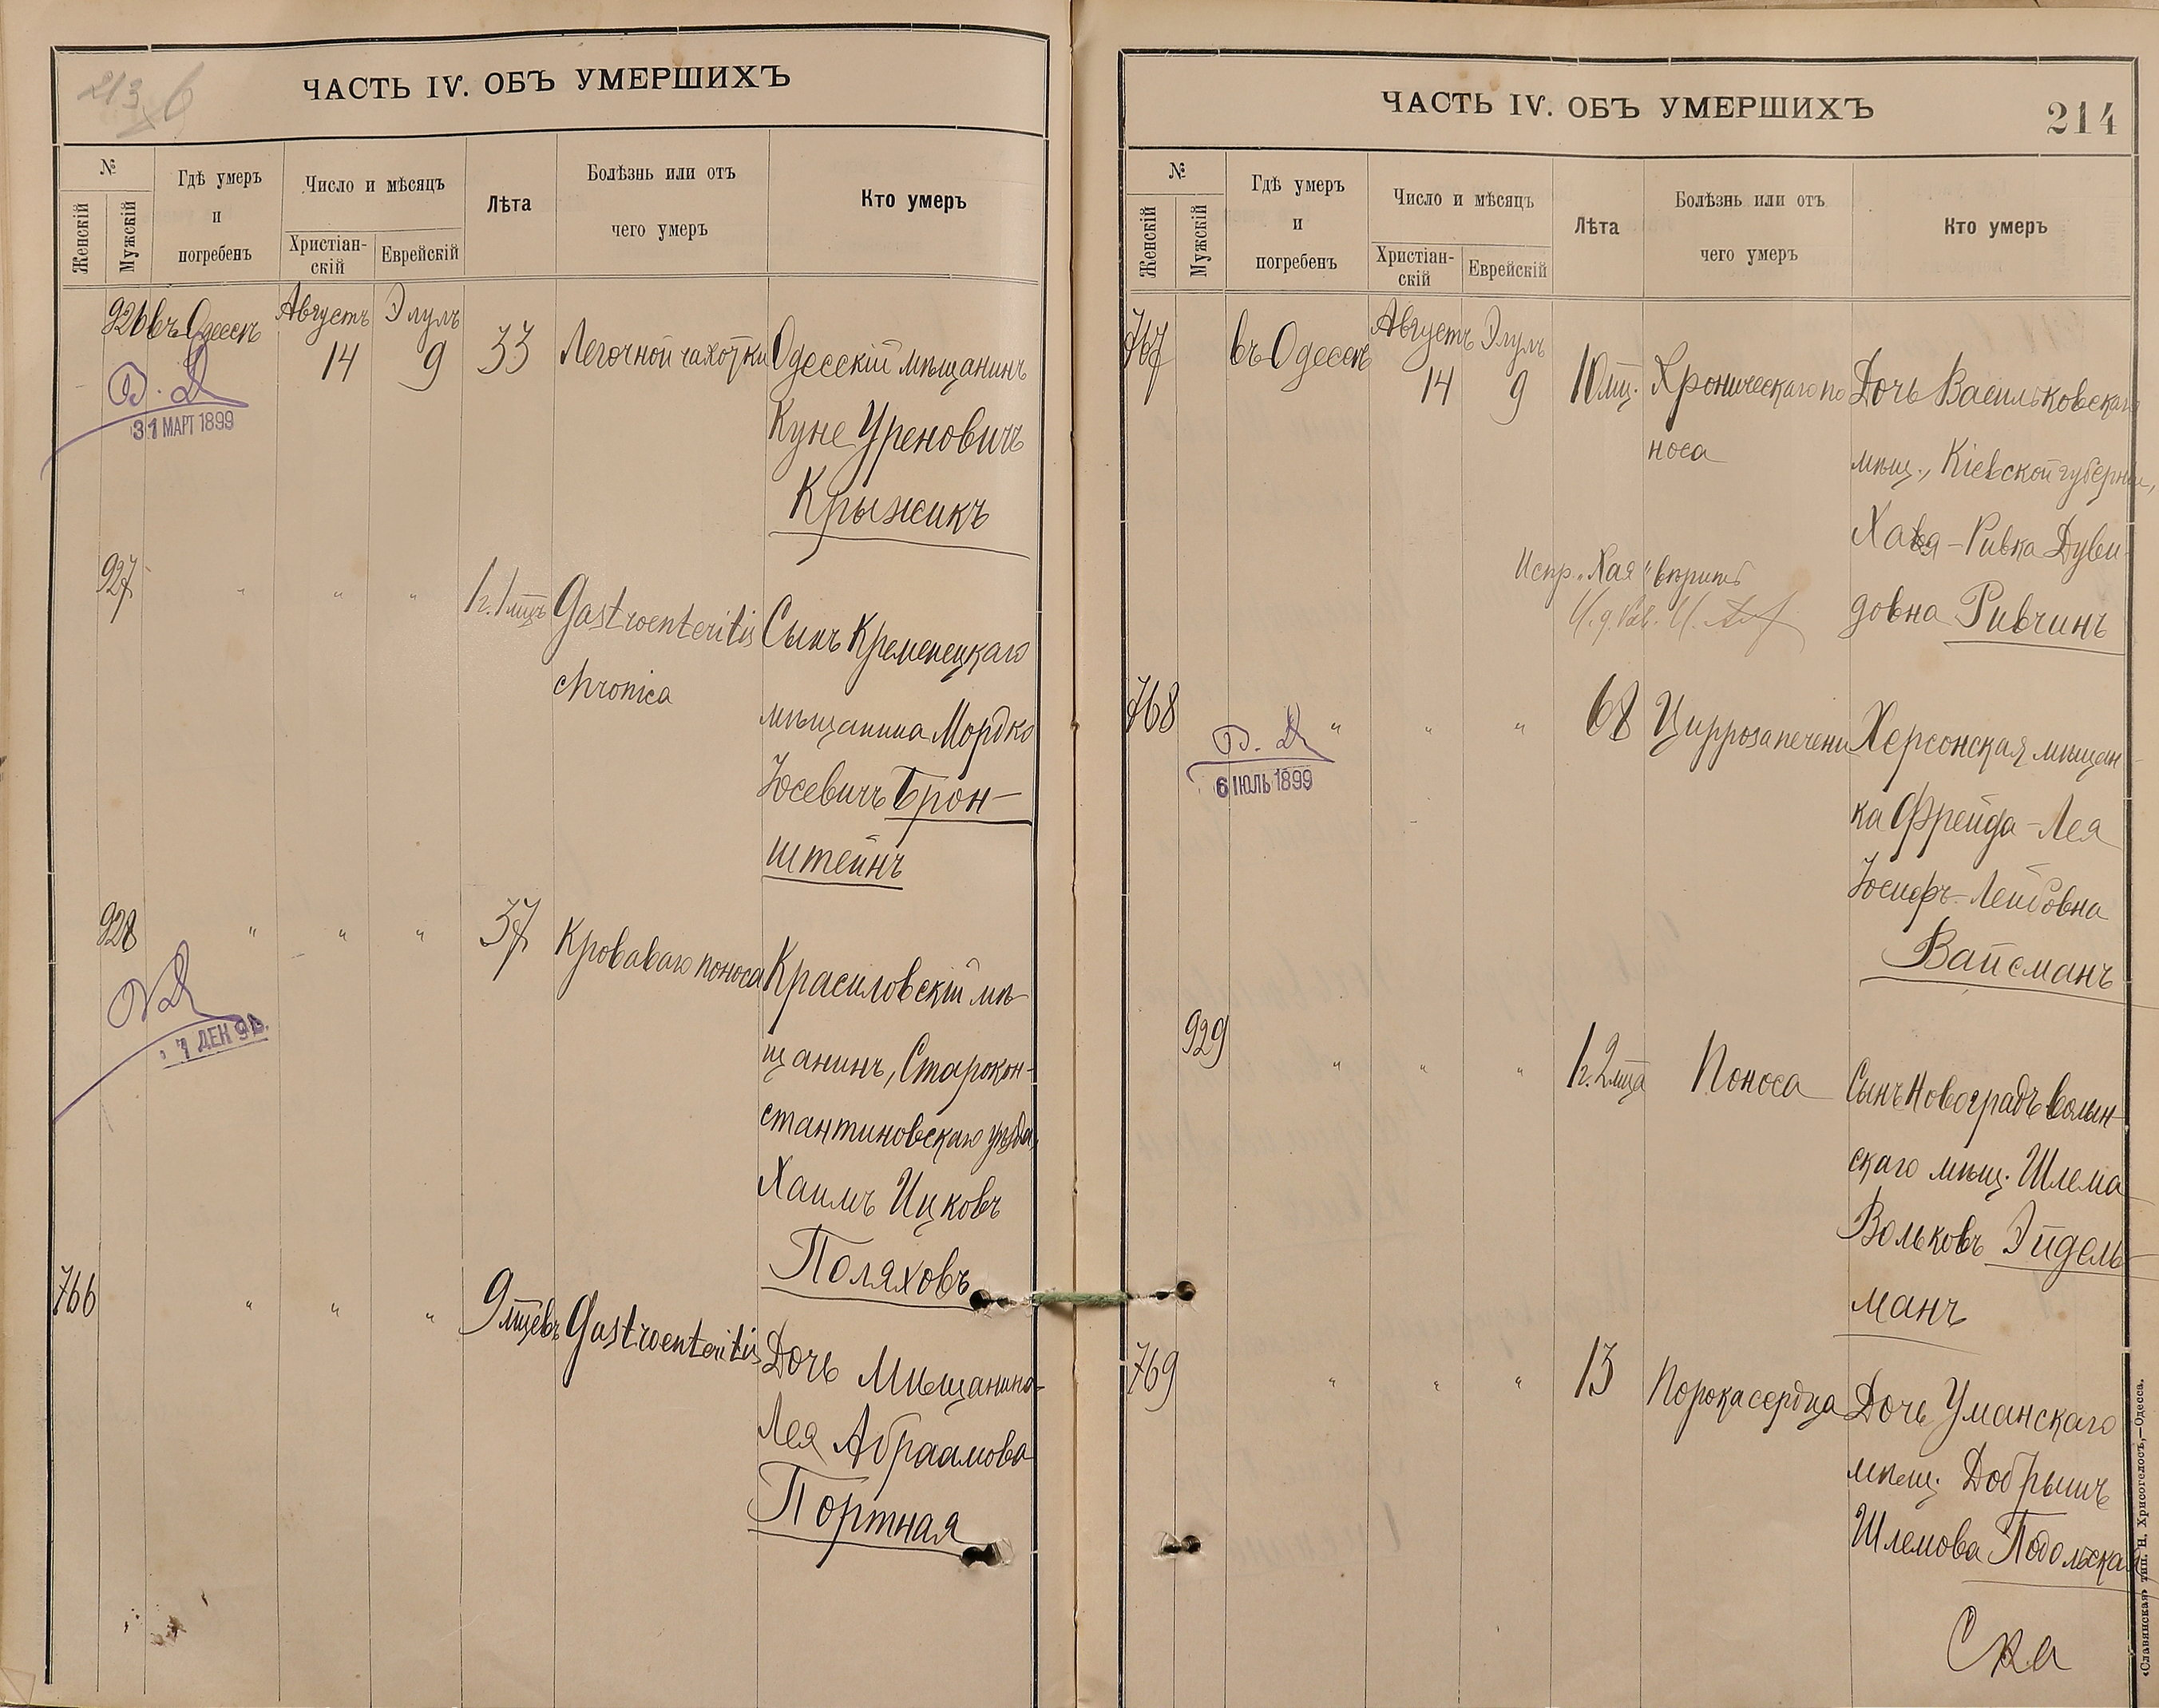 213
ЧАСТЬ IV. ОБЪ УМЕРШИХЪ
№
Женскій
Мужскій
Гдѣ умеръ
и
погребенъ
Число и мѣсяцъ
Христіан-
скій
Еврейскій
Лѣта
Болѣзнь или отъ
чего умеръ
Кто умеръ
926 въ Одессѣ Августъ 14 Элулъ 9 33 Легочной чахотки Одесскій мѣщанинъ
Куне Уренович
Крыжикъ
31 МАРТ 1899
927 " " " 1 г. 1 мцъ Gastroenteritis Сынъ Кременецкаго
chronica
мѣщанина Мордко
Іосевичъ Брон-
штейнъ
928 " " " 37 Кроваваго поноса Красиловскій мѣ-
щанинъ, Старокон-
стантиновскаго уѣзда,
Хаимъ Ицковъ
Поляховъ
7 ДЕК
766 " " " 9 мцевъ Gastroenteritis Дочь Мѣщанина
Лея Абраамова
Портная
ЧАСТЬ IV. ОБЪ УМЕРШИХЪ
214
№
Женскій
Мужскій
Гдѣ умеръ
и
погребенъ
Число и мѣсяцъ
Христіан-
скій
Еврейскій
Лѣта
Болѣзнь или отъ
чего умеръ
Кто умеръ
767 въ Одессѣ Августъ 14 Элулъ 9 10 мц. Хроническаго по Дочь Васильковскаго
носа
мѣщ., Кіевской губерніи,
Хая-Ривка Дуви-
довна Ривчинъ
Испр. "Хая" вѣрить
768 " " " 68 Цирроза печени Херсонская мѣщан-
ка Фрейда-Лея
Іосифъ-Лейбовна
Вайсманъ
6 ІЮЛЬ 1899
929 " " " 1 г. 2 мца Поноса Сынъ Новоградъволын-
скаго мѣщ. Шлема
Вольковъ Эйдель-
манъ
769 " " " 13 Порока сердца Дочь Уманскаго
мѣщ. Добрышъ
Шлемова Подольская
Ска
«Славянская» тип. Н. Хрисогелосъ,—Одесса.